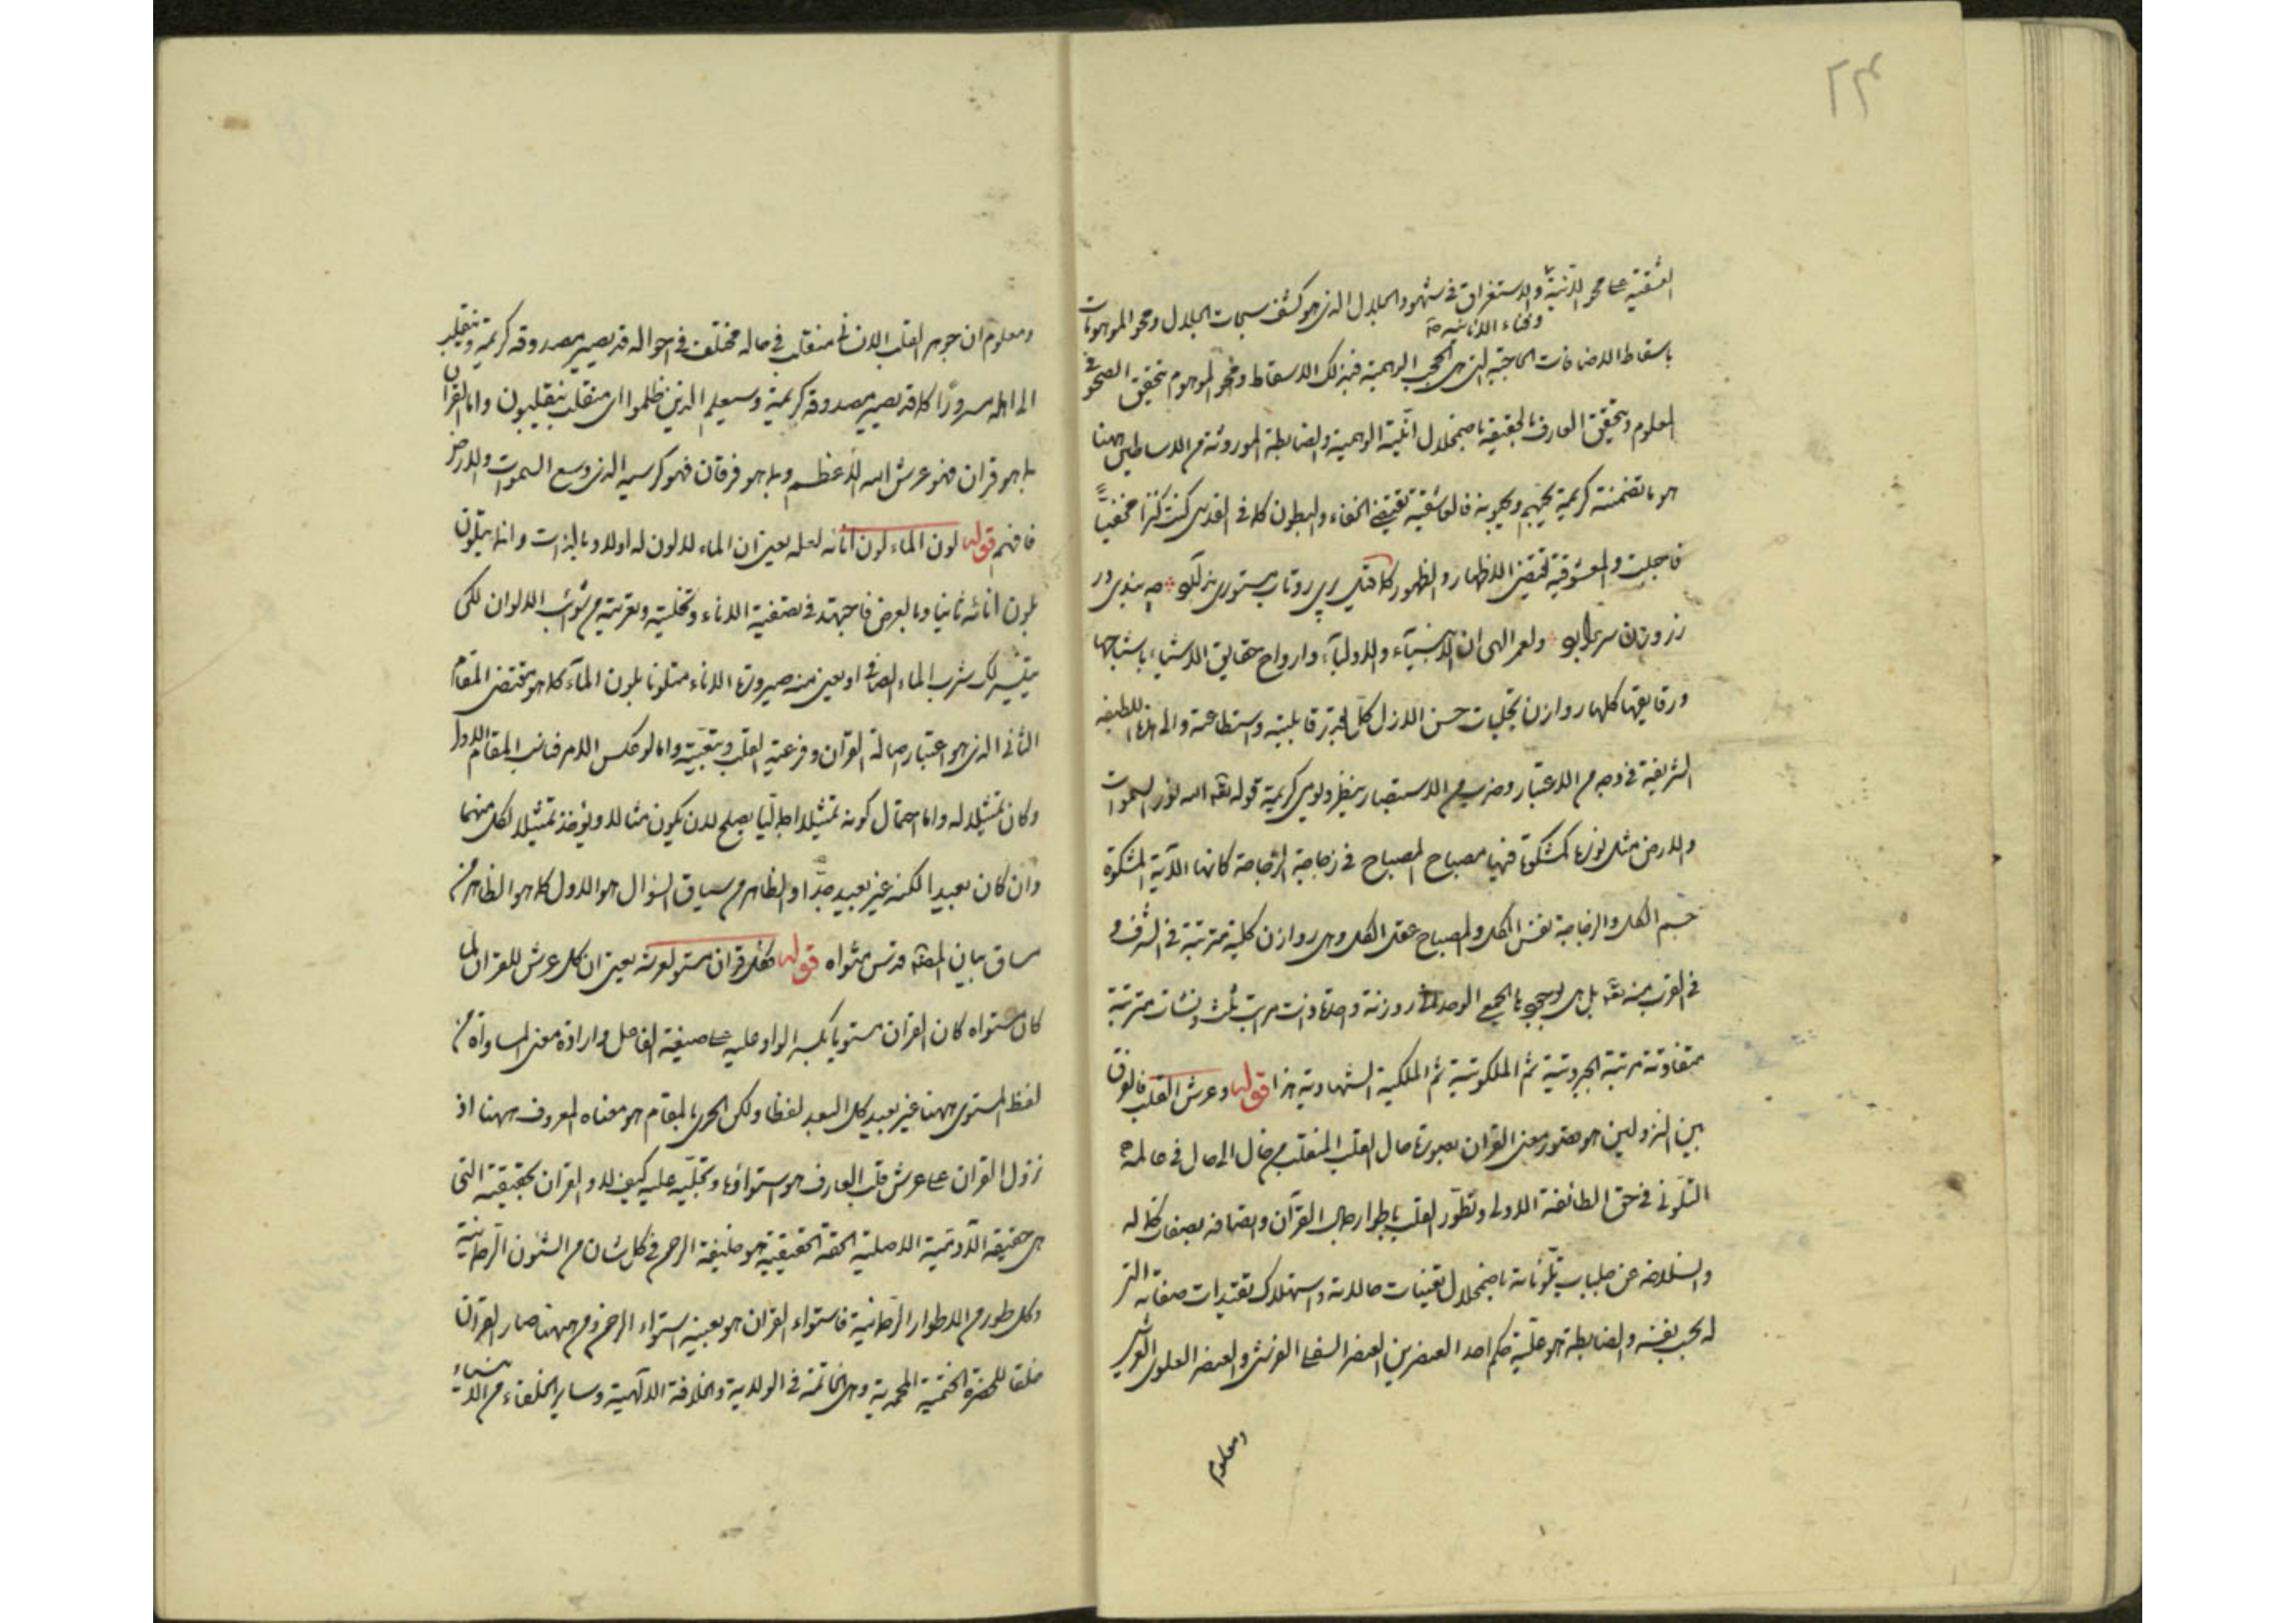 ٢٤
العشقية على محو الاثنية والاستغراق في شهود الجلال الذي هو كشف سبحات الجلال ومحو الموهومات
وفناء الانانية
باسقاط الاضافات الحاجبة التي هي الحجب الوهمية فبذلك الاسقاط ومحو الموهوم بتحقيق الصحو في
المعلوم وبتحقق العارف بالحقيقة باضمحلال انّيّته الوهمية والضابطة الموروثة من الاساطين ههنا
هو ما تضمنته كريمة يحبهم ويحبونه فالعاشقية تقتضي الخفاء والبطون كما في القدسي كنت كنزا مخفيا
فاحببت والمعشوقية تقتضي الاظهار والظهور كما قيل پری رو تاب مستوری ندارد چه بندی در
ز روزن سر برآرد ولعمر الهي ان الانبياء والاولياء وارواح حقايق الاشياء باشباحها
ورقايقها كلها روازن تجليات حسن الازل كل بقدر قابليته واستطاعته والى هذه اللطيفة
الشريفة في وجه من الاعتبار وضرب من الاستبصار ينظر ويومي كريمة قوله تعالى الله نور السموات
والارض مثل نوره كمشكوة فيها مصباح المصباح في زجاجة الزجاجة كانها الآية المشكوة
جسم الكل والزجاجة نفس الكل والمصباح عقل الكل وهي روازن كلية مترتبة في الشرف و
في القرب منه تعالى بل هي بوجودها الجمعي الوحداني روزنة واحدة ذات مراتب ثلث ونشات مترتبة
متفاوتة مرتبة الجبروتية ثم الملكوتية ثم الملكية الشهادية هذا قوله وعرش القلب فالفرق
بين النزولين هو تصور معنى القران بصورة حال القلب المنقلب من حال الى حال في عالمه
التلوني في حق الطائفة الاولى وتطور القلب باطوار حال القرآن واتصافه بصفات كماله
وانسلاخه عن جلباب تلوناته باضمحلال تعينات حالاته واستهلاك تقيدات صفاته التي
له بحسب نفسه والضابطة هو غلبة حكم احد العنصرين العنصر السفلي الفرشي والعنصر العلوي العرشي
ومعلوم
ومعلوم ان جوهر القلب الانساني منقلب في حاله مختلف في احواله قد يصير مصدوقه كريمة وينقلب
الى اهله مسرورًا كما قد يصير مصدوقة كريمة وسيعلم الذين ظلموا اي منقلب ينقلبون واما القران
بما هو قران فهو عرش الله الاعظم وبما هو فرقان فهو كرسيه الذي وسع السموات والارض
فافهم قوله لون الماء لون انائه لعله يعني ان الماء لا لون له اولا وبالذات وانما يتلون
بلون انائه ثانيا وبالعرض فاجتهد في تصفية الاناء وتخليته وتعريته من شوائب الالوان لكي
يتيسر لك شرب الماء الصافي او يعني منه صيرورة الاناء متلونا بلون المآء كما هو مقتضى المقام
الثاني الذي هو اعتبار اصالة القرآن وفرعية القلب وتبعيته واما لو عكس الامر فناسب المقام الاول
وكان تمثيلا له واما احتمال كونه تمثيلا اجماليا يصلح لان يكون مثالا ويؤخذ تمثيلا لكل منهما
وان كان بعيدا لكنه غير بعيد جدّا والظاهر من سياق السؤال هو الاول كما هو الظاهر من
مساق بيان المصنف قدس مثواه قوله فكل قران مستو لعرشه يعني ان كل عرش للقران لما
كان مستواه كان القران مستويا بكسر الواو عليه على صيغة الفاعل وارادة معنى المساواة من
لفظ المستوى ههنا غير بعيد كل البعد لفظا ولكن الحري بالمقام هو معناه المعروف ههنا اذ
نزول القران على عرش قلب العارف هو استواؤه وتجلّيه عليه كيف لا والقران بحقيقته التي
هي حقيقة الآدمية الاصلية الحقة الحقيقية هو خليفة الرحمن في كل شان من الشئون الرحمانية
وكل طور من الاطوار الرحمانية فاستواء القران هو بعينه استواء الرحمن ومن ههنا صار القران
خلقا للحضرة الختمية المحمدية وهي الخاتمة في الولاية والخلافة الالهية وساير الخلفاء من الانبياء